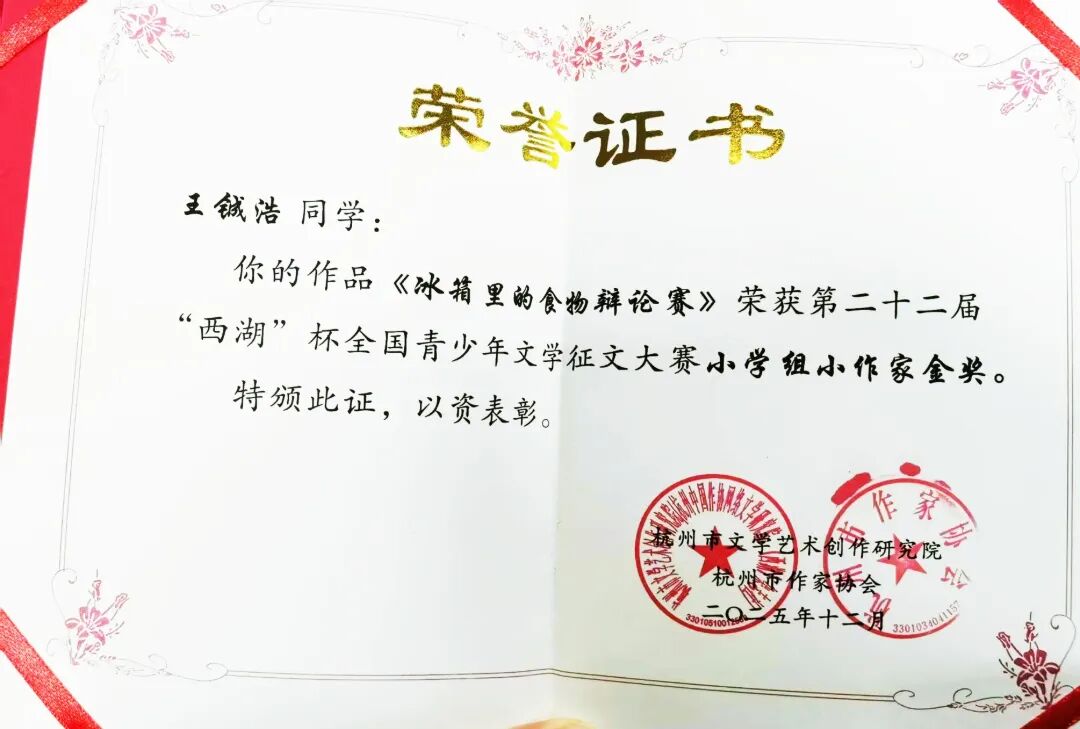 荣誉证书
王铖浩 同学：
你的作品《冰箱里的食物辩论赛》荣获第二十二届
“西湖”杯全国青少年文学征文大赛小学组小作家金奖。
特颁此证，以资表彰。
杭州市文学艺术创作研究院
杭州市作家协会
二〇二五年十二月
杭州市作家协会